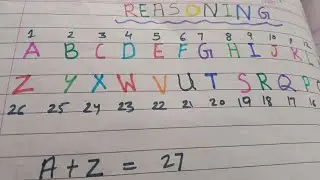 REASONING
1 2 3 4 5 6 7 8 9 10 11
A B C D E F G H I J K
Z Y X W V U T S R Q P
26 25 24 23 22 21 20 19 18 17 16
A + Z = 27